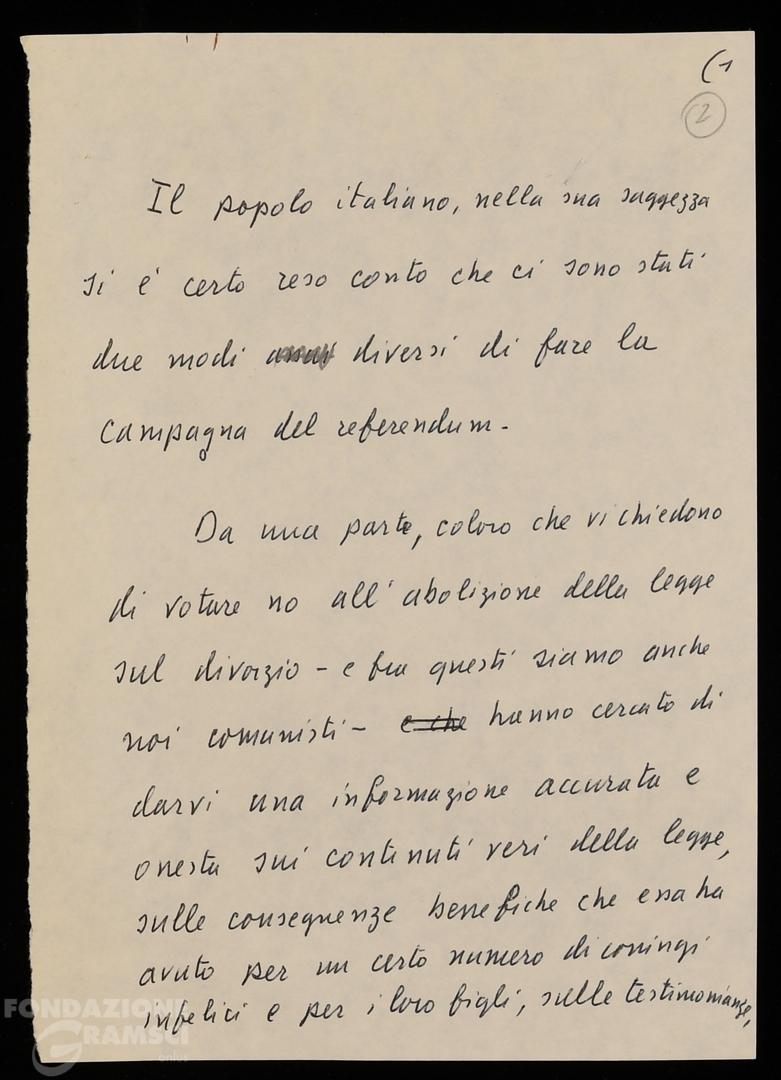 (1
2
Il popolo italiano, nella sua saggezza
si é certo reso conto che ci sono stati
due modi assai diversi di fare la
campagna del referendum-
Da una parte, coloro che vi chiedono
di votare no all'abolizione della legge
sul divorzio - e fra questi siamo anche
noi comunisti - e che hanno cercato di
darvi una informazione accurata e
onesta sui contenuti veri della legge,
sulle conseguenze benefiche che essa ha
avuto per un certo numero di coniugi
infelici e per i loro figli, sulle testimonianze,
FONDAZIONE
GRAMSCI
onlus